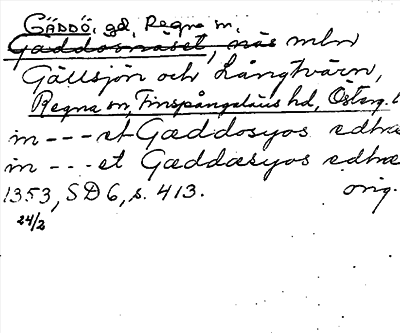 GÄDDÖ. gd, Regna sn.
Gaddosnäset, näs mln
Gällsjön och Långtvärn,
Regna sn, Finspångaläns hd, Österg. l
in --- et Gæddosyos edhæ
in --- et Gæddæsyos edhæ
1353, SD 6, s. 413. orig.
24/2